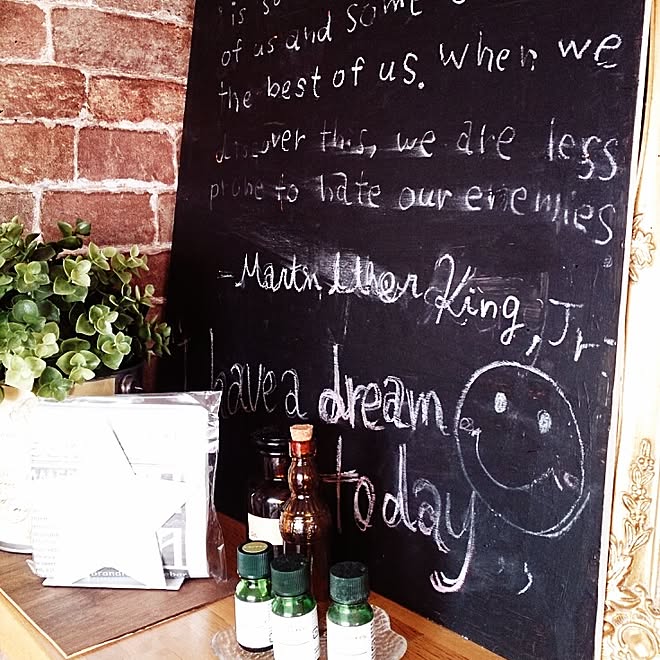 is so
of us and some
the best of us. When we
discover this, we are less
prone to hate our enemies
- Martin Luther King, Jr.
have a dream
today